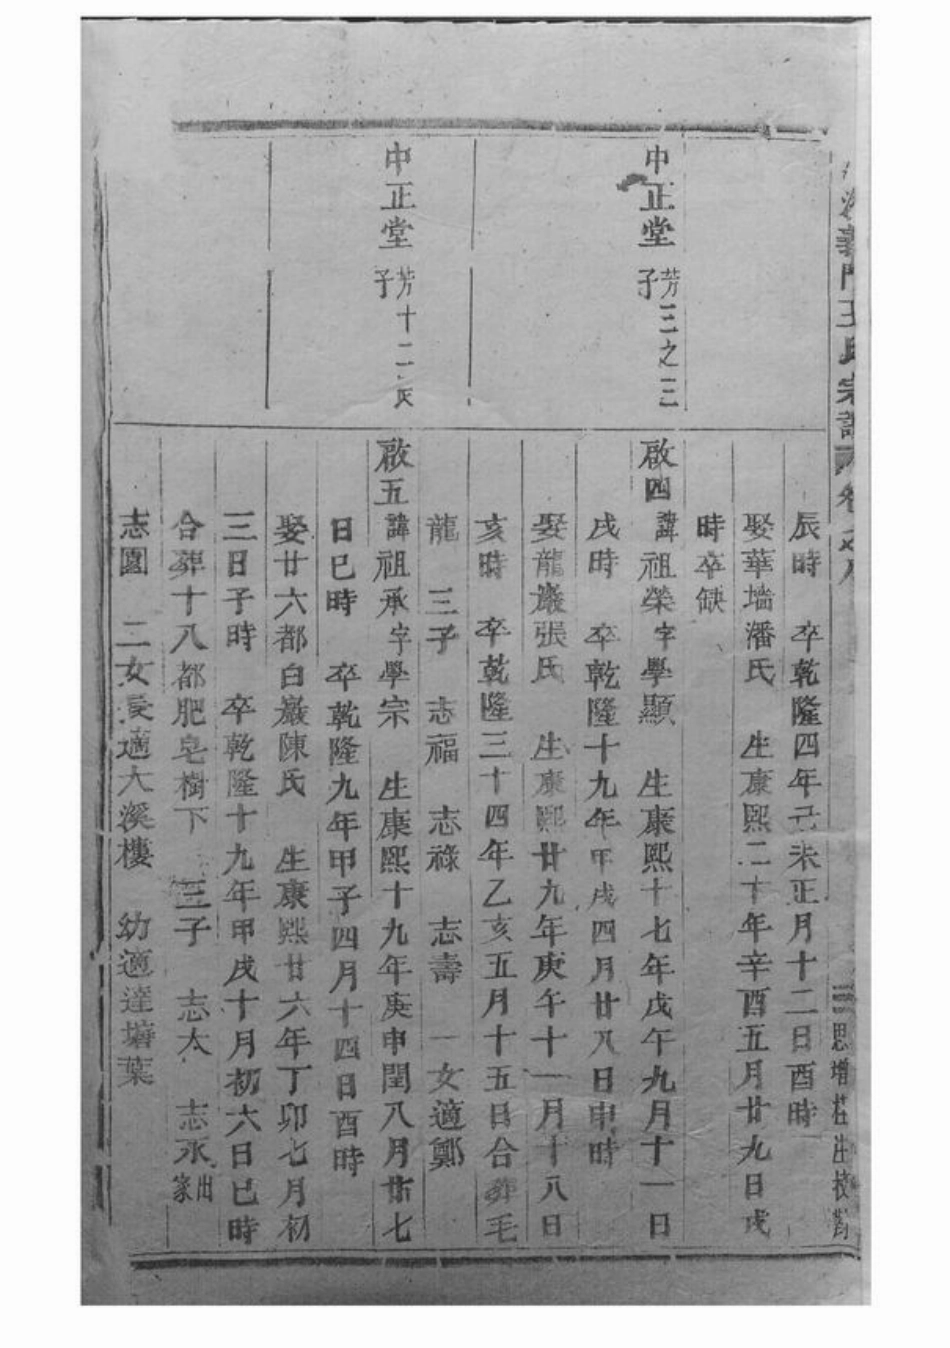 義門王氏宗譜 卷之八 三 思增柱注校對
辰時 卒乾隆四年己未正月十二日酉時
娶華墻潘氏 生康熙二十年辛酉五月廿九日戌
時卒缺
中正堂 芳三之三子
啟四 諱祖榮字學顯 生康熙十七年戊午九月十一日
戌時 卒乾隆十九年甲戌四月廿八日申時
娶龍巖張氏 生康熙廿九年庚午十一月十八日
亥時 卒乾隆三十四年乙亥五月十五日合葬毛
龍 三子 志福 志祿 志壽 一女適鄭
中正堂 芳十二長子
啟五 諱祖承字學宗 生康熙十九年庚申閏八月廿七
日巳時 卒乾隆九年甲子四月十四日酉時
娶廿六都白巖陳氏 生康熙廿六年丁卯七月初
三日子時 卒乾隆十九年甲戌十月初六日巳時
合葬十八都肥皂樹下 三子 志太 志永出家
志園 二女長適大溪樓 幼適達塘葉